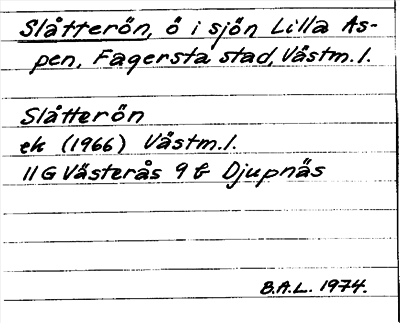 Slåtterön, ö i sjön Lilla As-
pen, Fagersta stad, Västm. l.
Slåtterön
ek (1966) Västm. l.
11G Västerås 9b Djupnäs
B.A.L. 1974.